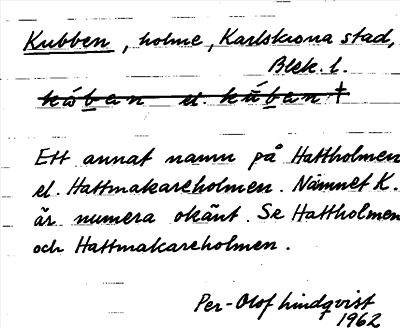 Kubben, holme, Karlskrona stad,
Blek. l.
kòban el. kúban †
Ett annat namn på Hattholmen
el. Hattmakareholmen. Namnet K.
är numera okänt. Se Hattholmen
och Hattmakareholmen.
Per-Olof Lindqvist
1962